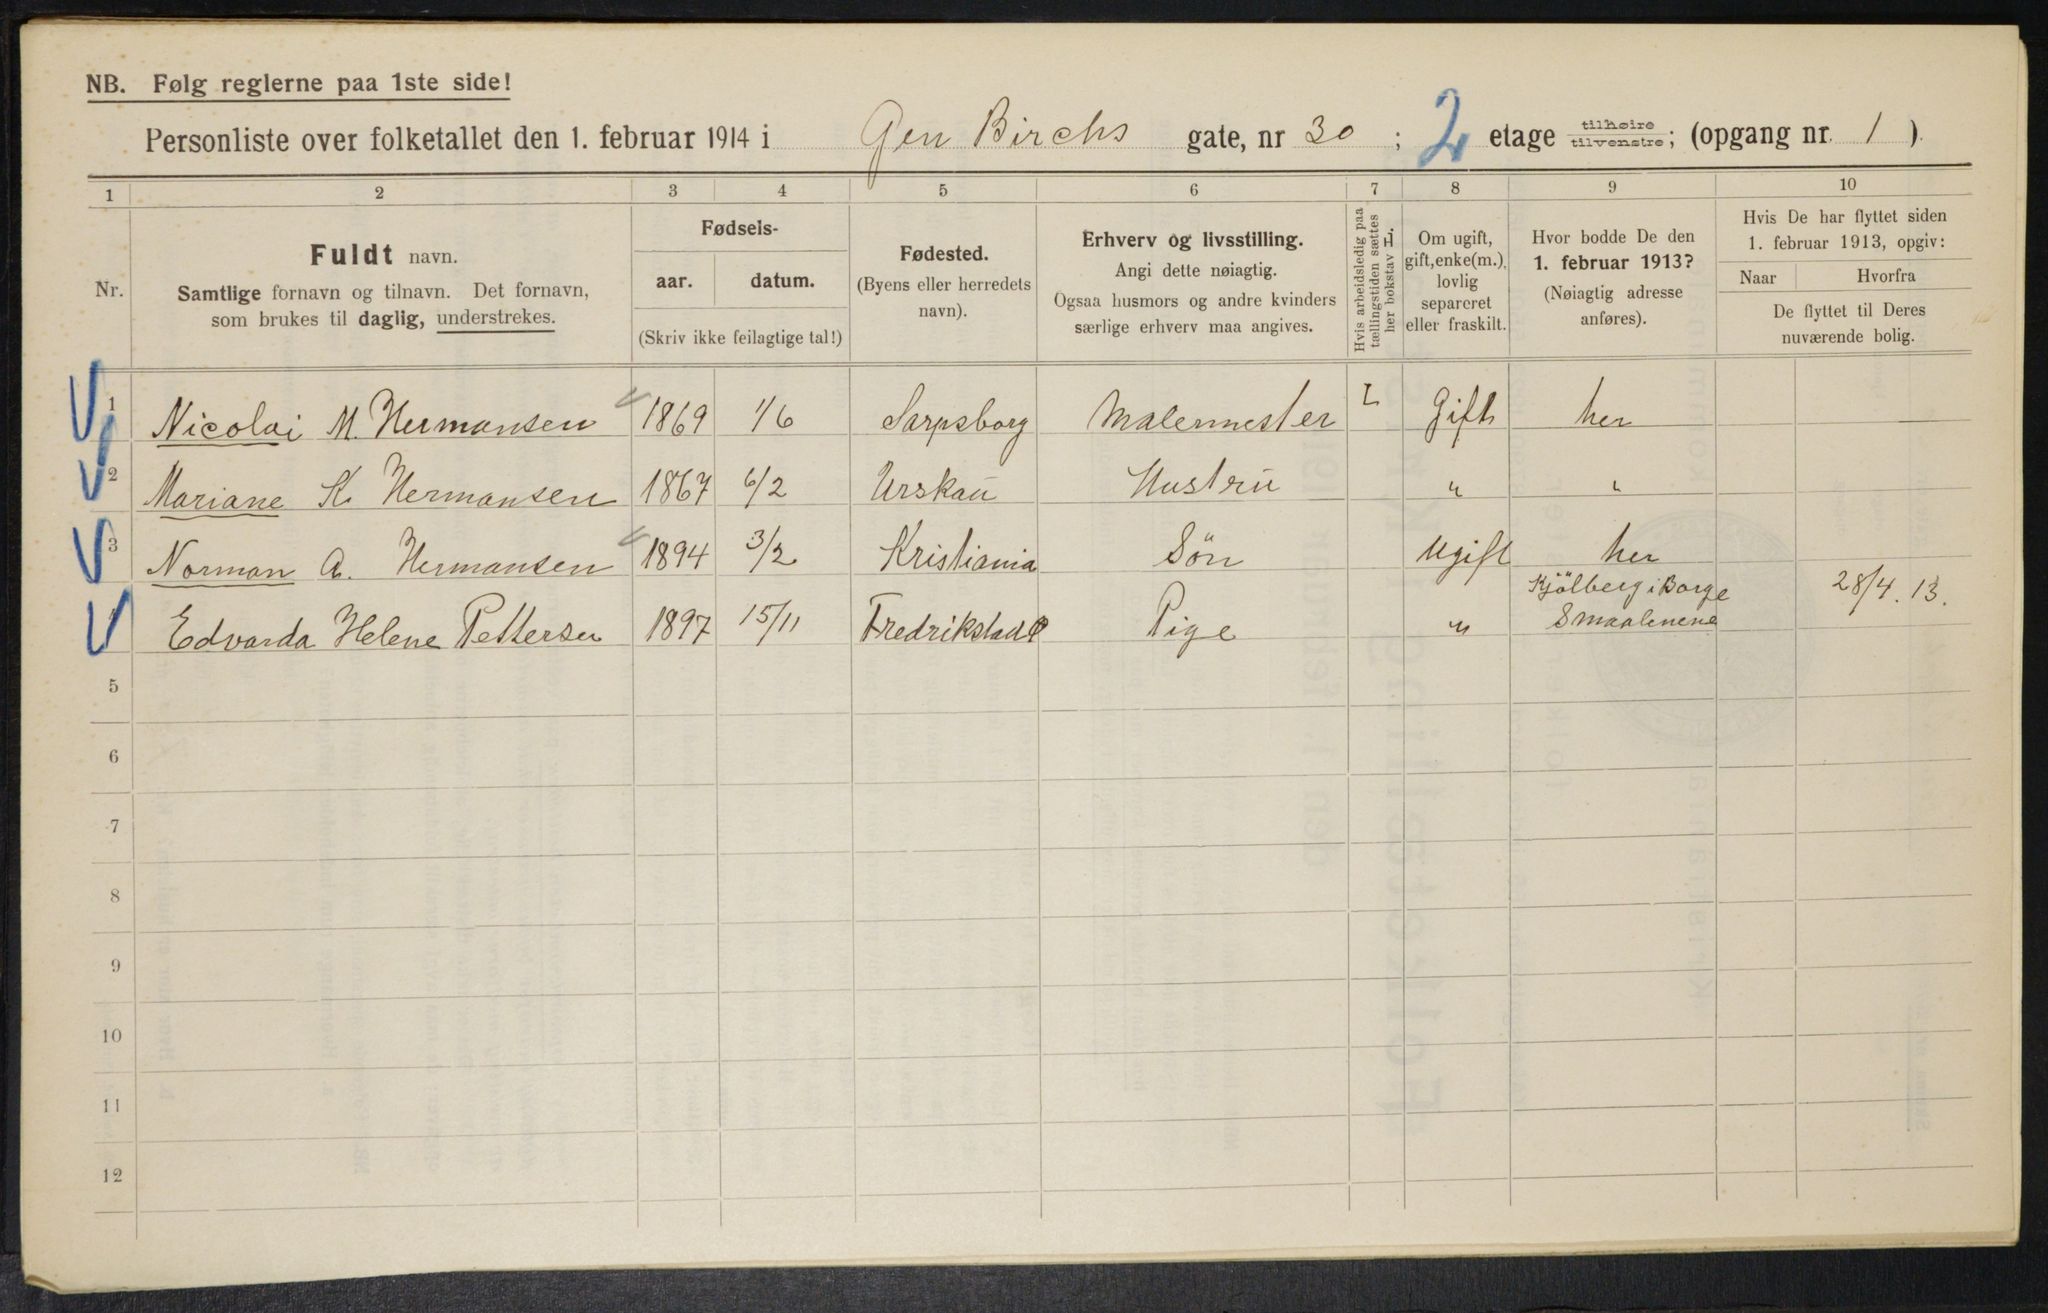 NB. Følg reglerne paa 1ste side!
Personliste over folketallet den 1. februar 1914 i Gen Birchs gate, nr 30 ; 2 etage tilhøire tilvenstre; (opgang nr. 1 ).
1 2 3 4 5 6 7 8 9 10
Nr.
Fuldt navn.
Samtlige fornavn og tilnavn. Det fornavn,
som brukes til daglig, understrekes.
Fødsels-
aar. datum.
(Skriv ikke feilagtige tal!)
Fødested.
(Byens eller herredets
navn).
Erhverv og livsstilling.
Angi dette nøiagtig.
Ogsaa husmors og andre kvinders
særlige erhverv maa angives.
Hvis arbeidsledig paa
tællingstiden sættes
her bokstav L.
Om ugift,
gift, enke(m.),
lovlig
separeret
eller fraskilt.
Hvor bodde De den
1. februar 1913?
(Nøiagtig adresse
anføres).
Hvis De har flyttet siden
1. februar 1913, opgiv:
Naar Hvorfra
De flyttet til Deres
nuværende bolig.
1 Nicolai M. Hermansen 1869 1/6 Sarpsborg Malermester L Gift her
2 Mariane K. Hermansen 1867 6/2 Urskau Hustru " "
3 Norman A. Hermansen 1894 3/2 Kristiania Sön Ugift her
4 Edvarda Helene Pettersen 1897 15/11 Fredrikstad Pige " Kjölberg i Borge Smaalenene 28/4. 13.
5
6
7
8
9
10
11
12